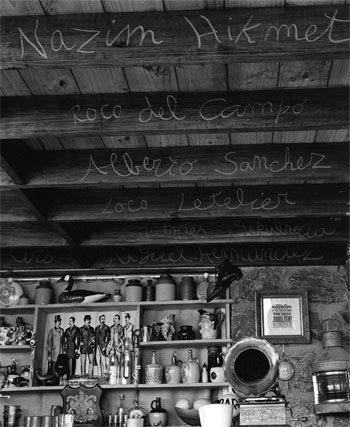 Nazim Hikmet
Roco del Campo
Alberto Sanchez
Loco Letelier
Miguel Hernandez